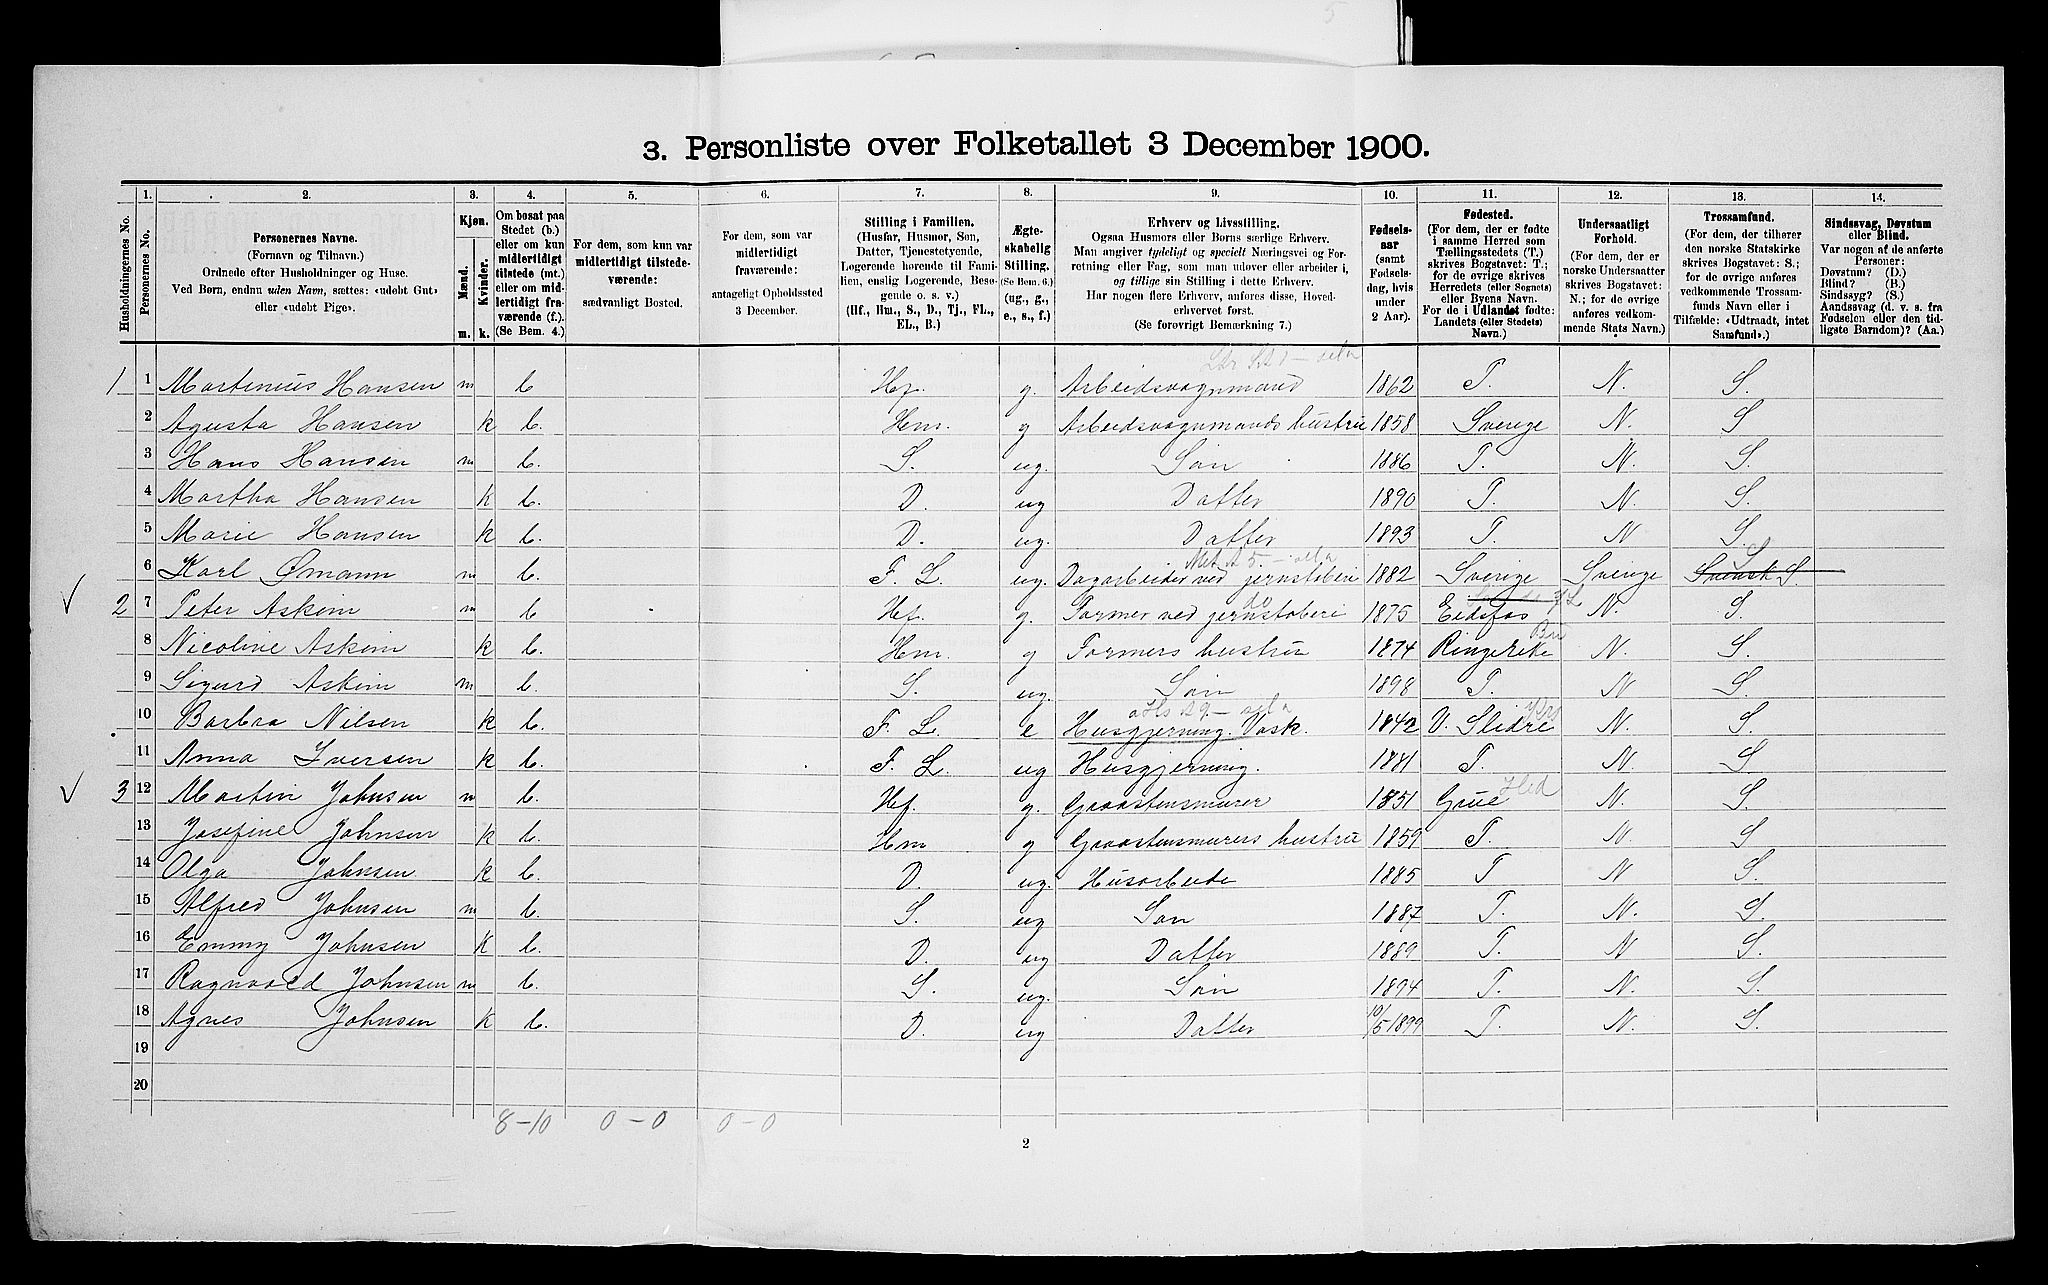 5
3. Personliste over Folketallet 3 December 1900.
Husholdningernes No.
1. Personernes No.
2. Personernes Navne. (Fornavn og Tilnavn.) Ordnede efter Husholdninger og Huse. Ved Børn, endnu uden Navn, sættes: «udøbt Gut» eller «udøbt Pige».
3. Kjøn. Mænd. m. Kvinder. k.
4. Om bosat paa Stedet (b.) eller om kun midlertidigt tilstede (mt.) eller om midlertidigt fraværende (f.). (Se Bem. 4.)
5. For dem, som kun var midlertidigt tilstedeværende: sædvanligt Bosted.
6. For dem, som var midlertidigt fraværende: antageligt Opholdssted 3 December.
7. Stilling i Familien. (Husfar, Husmor, Søn, Datter, Tjenestetyende, Logerende hørende til Familien, enslig Logerende, Besøgende o. s. v.) (Hf., Hm., S., D., Tj., FL., EL., B.)
8. Ægteskabelig Stilling. (Se Bem. 6.) (ug., g., e., s., f.)
9. Erhverv og Livsstilling. Ogsaa Husmors eller Børns særlige Erhverv. Man angiver tydeligt og specielt Næringsvei og Forretning eller Fag, som man udøver eller arbeider i, og tillige sin Stilling i dette Erhverv. Har nogen flere Erhverv, anføres disse, Hovederhvervet først. (Se forøvrigt Bemærkning 7.)
10. Fødselsaar (samt Fødselsdag, hvis under 2 Aar).
11. Fødested. (For dem, der er fødte i samme Herred som Tællingsstedets (T.) skrives Bogstavet: T.; for de øvrige skrives Herredets (eller Sognets) eller Byens Navn. For de i Udlandet fødte: Landets (eller Stedets) Navn.)
12. Undersaatligt Forhold. (For dem, der er norske Undersaatter skrives Bogstavet: N.; for de øvrige anføres vedkommende Stats Navn.)
13. Trossamfund. (For dem, der tilhører den norske Statskirke skrives Bogstavet: S.; for de øvrige anføres vedkommende Trossamfunds Navn eller i Tilfælde: «Udtraadt, intet Samfund».)
14. Sindssvag, Døvstum eller Blind. Var nogen af de anførte Personer: Døvstum? (D.) Blind? (B.) Sindssyg? (S.) Aandssvag (d. v. s. fra Fødselen eller den tidligste Barndom)? (Aa.)
1 1 Martinius Hansen m b Hf. g. Arbeidsvognmand 1862 T. N. S.
2 Agusta Hansen k b. Hm. g Arbeidsvognmands hustru 1858 Sverige N. S
3 Hans Hansen m b. S. ug. Søn 1886 T. N. S.
4 Martha Hansen k b. D. ug Datter 1890 T. N S.
5 Marie Hansen k b. D. ug. Datter 1893 T. N S.
6 Karl Ømann m b. F. L. ug. Dagarbeider ved jernstøberi 1882 Sverige Sverige Svensk S. S
2 7 Peter Askim m b Hf. g. Former ved jernstøberi do 1875 Eidsfos N. S.
8 Nicoline Askim k b. Hm. g Formers hustru 1874 Ringerike Bu N. S.
9 Sigurd Askim m b. S. ug. Søn 1898 T. N S.
10 Barbra Nilsen k b. F. L. e Husgjerning. Vask. 1842 V. Slidre N. S.
11 Anna Iversen k b. F. L. ug Husgjerning. 1881 T. N. S
3 12 Martin Johnsen m b. Hf. g. Graastensmurer 1851 Grue Hed N. S.
13 Josefine Johnsen k b. Hm g Graastensmurers hustru 1859 T. N. S
14 Olga Johnsen k b. D. ug. Husarbeide 1885 T N S.
15 Alfred Johnsen m b. S. ug Søn 1887 T. N. S.
16 Emmy Johnsen k b. D. ug Datter 1889 T. N S.
17 Ragnvald Johnsen m b. S. ug. Søn 1894 T. N. S.
18 Agnes Johnsen k b. D. ug Datter 10/5 1899 T. N. S.
19
20
8-10 0-0 0-0
2